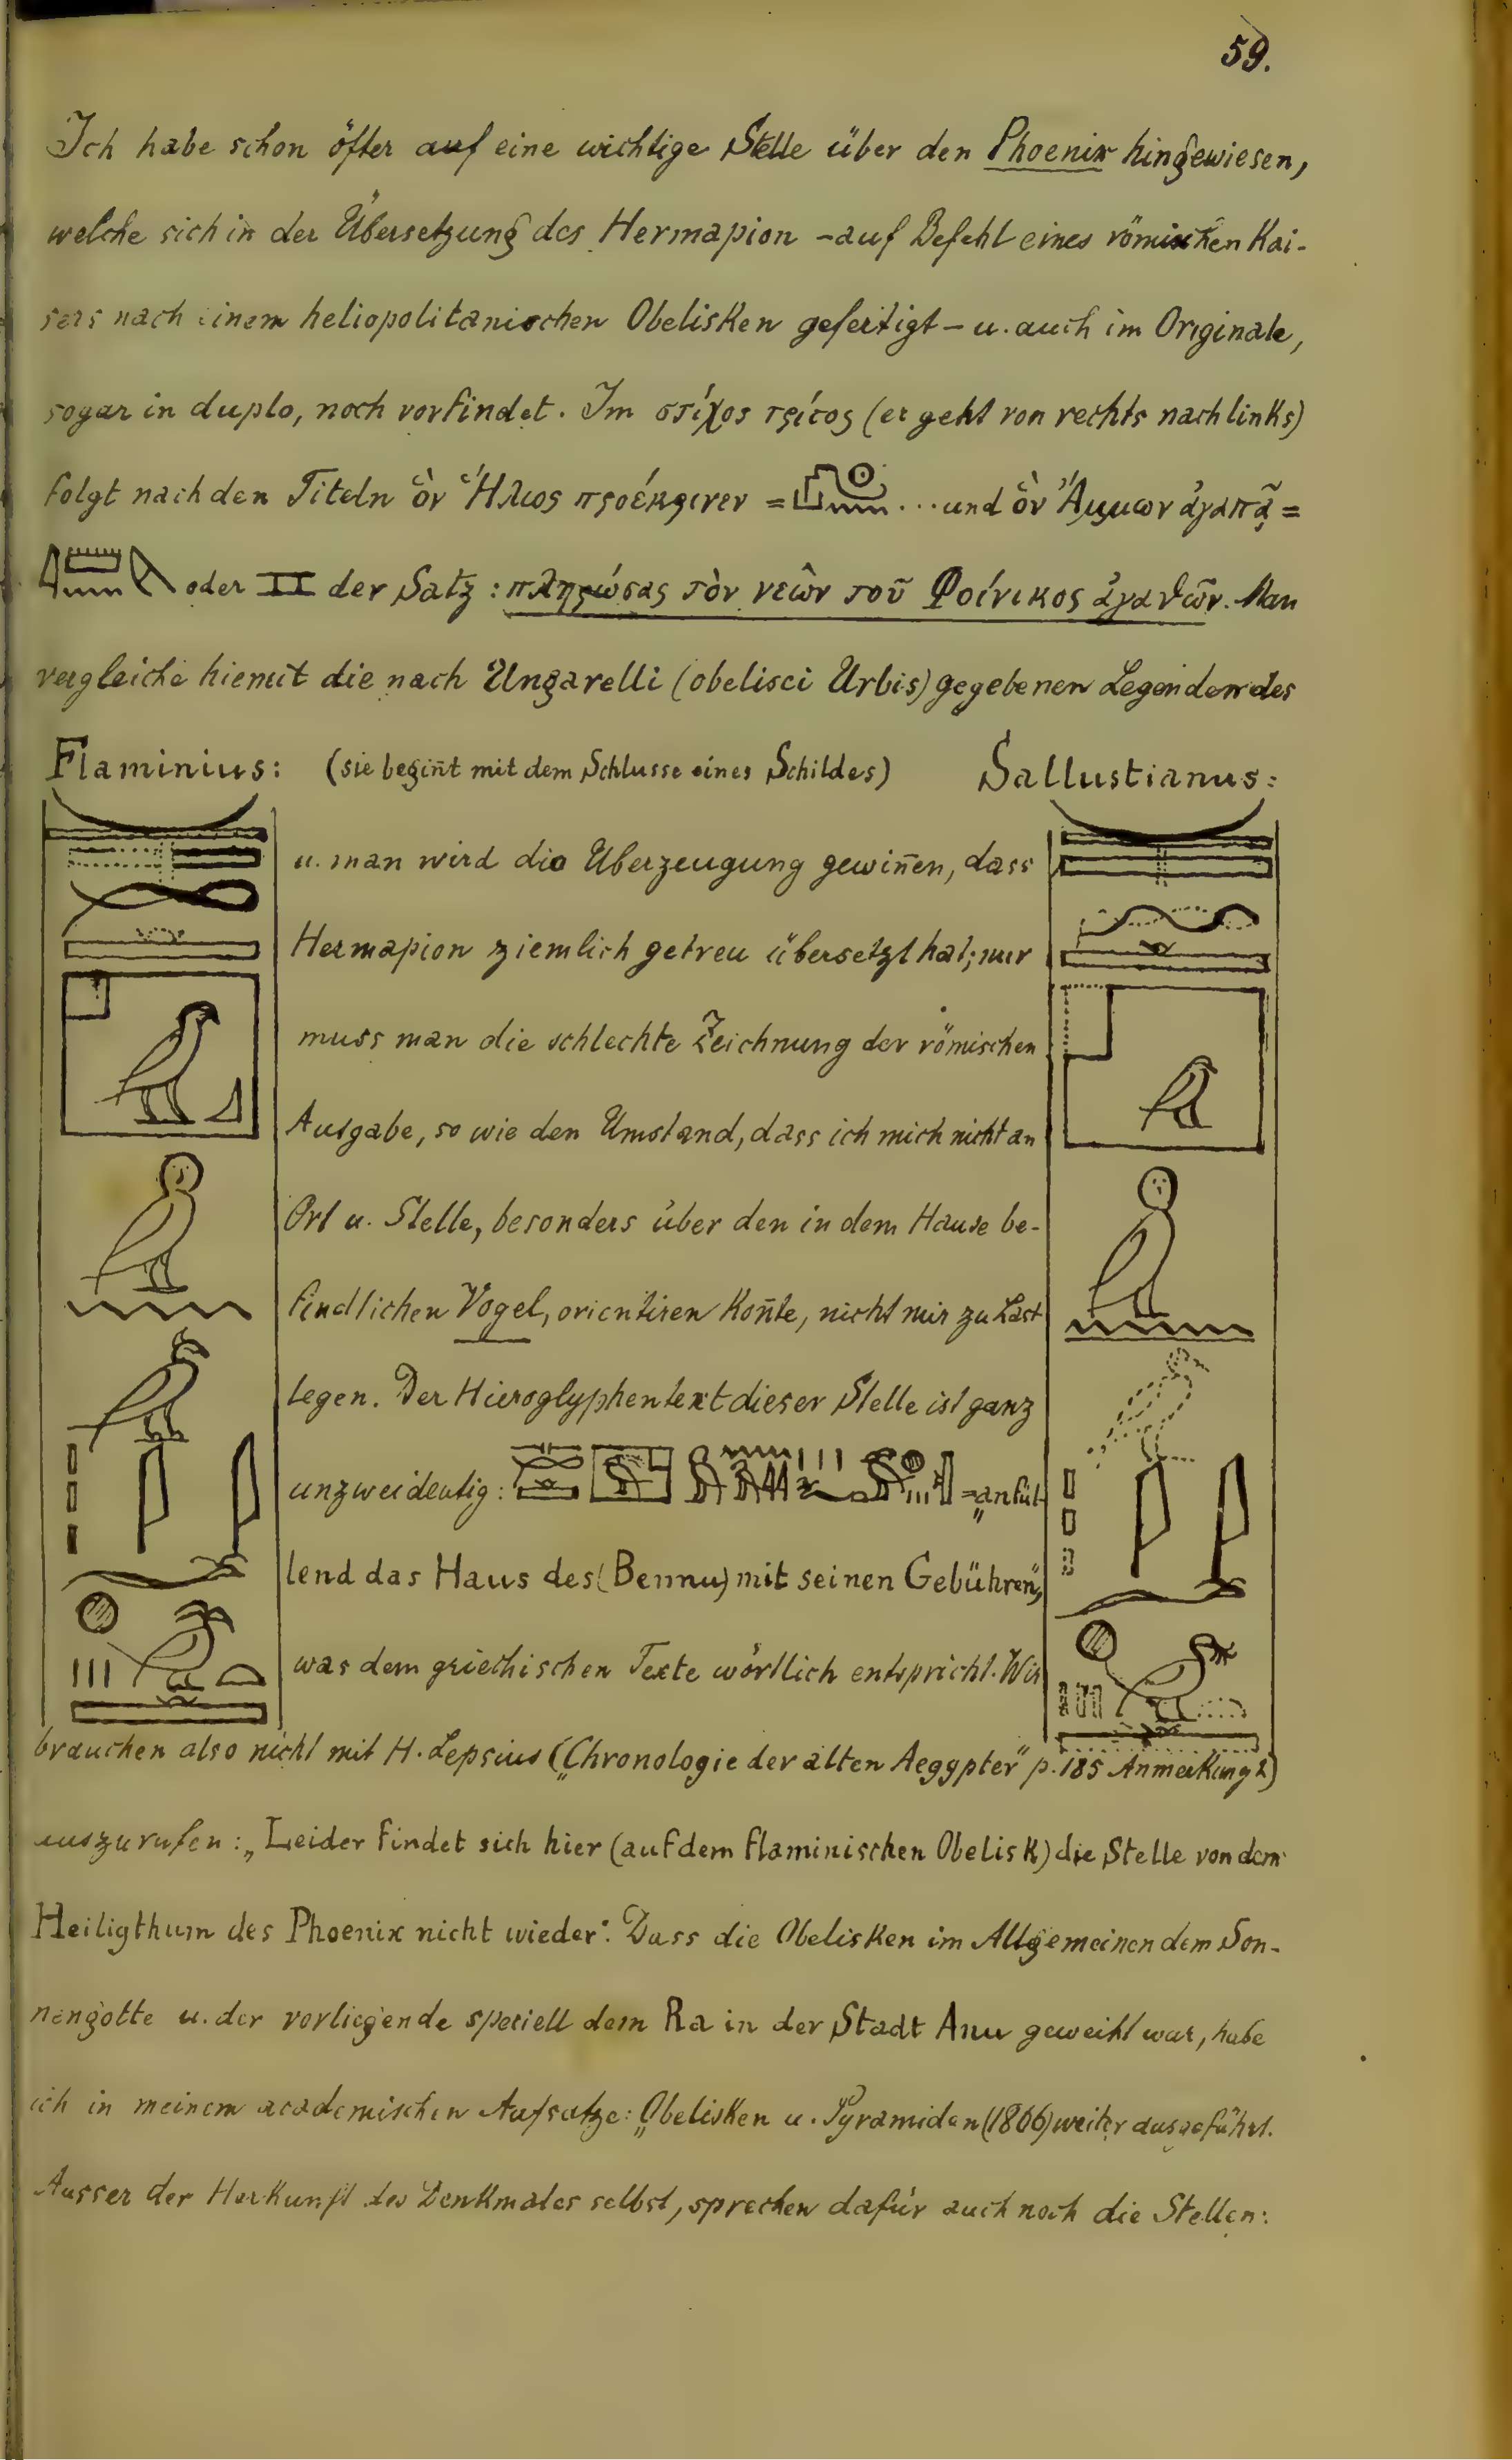 59.
Ich habe schon öfter auf eine wichtige Stelle über den Phoenix hingewiesen,
welche sich in der Übersetzung des Hermapion – auf Befehl eines römischen Kai-
sers nach einem heliopolitanischen Obelisken gefertigt – u. auch im Originale,
sogar in duplo, noch vorfindet. Im στίχος τρίτος (er geht von rechts nach links)
folgt nach den Titeln ὃν Ἥλιος προέκρινεν = ... und ὃν Ἄμμων ἀγαπᾷ =
oder der Satz: πληρώσας τὸν νεὼν τοῦ Φοίνικος ἀγαθῶν. Man
vergleiche hiemit die nach Ungarelli (obelisci Urbis) gegebenen Legenden des
Flaminius: (sie begiñt mit dem Schlusse eines Schildes) Sallustianus:
u. man wird die Überzeugung gewiñen, dass
Hermapion ziemlich getreu übersetzt hat; nur
muss man die schlechte Zeichnung der römischen
Ausgabe, so wie den Umstand, dass ich mich nicht an
Ort u. Stelle, besonders über den in dem Hause be-
findlichen Vogel, orientiren koñte, nicht mir zu Last
legen. Der Hieroglyphentext dieser Stelle ist ganz
unzweideutig: = „anfül-
lend das Haus des (Bennu) mit seinen Gebühren“,
was dem griechischen Texte wörtlich entspricht. Wir
brauchen also nicht mit H. Lepsius („Chronologie der alten Aegypter“ p. 185 Anmerkung 2)
auszurufen: „Leider findet sich hier (auf dem flaminischen Obelisk) die Stelle von dem
Heiligthum des Phoenix nicht wieder“. Dass die Obelisken im Allgemeinen dem Son-
nengotte u. der vorliegende speciell dem Ra in der Stadt Anu geweiht war, habe
ich in meinem academischen Aufsatze: „Obelisken u. Pyramiden (1866) weiter ausgeführt.
Ausser der Herkunft des Denkmales selbst, sprechen dafür auch noch die Stellen: